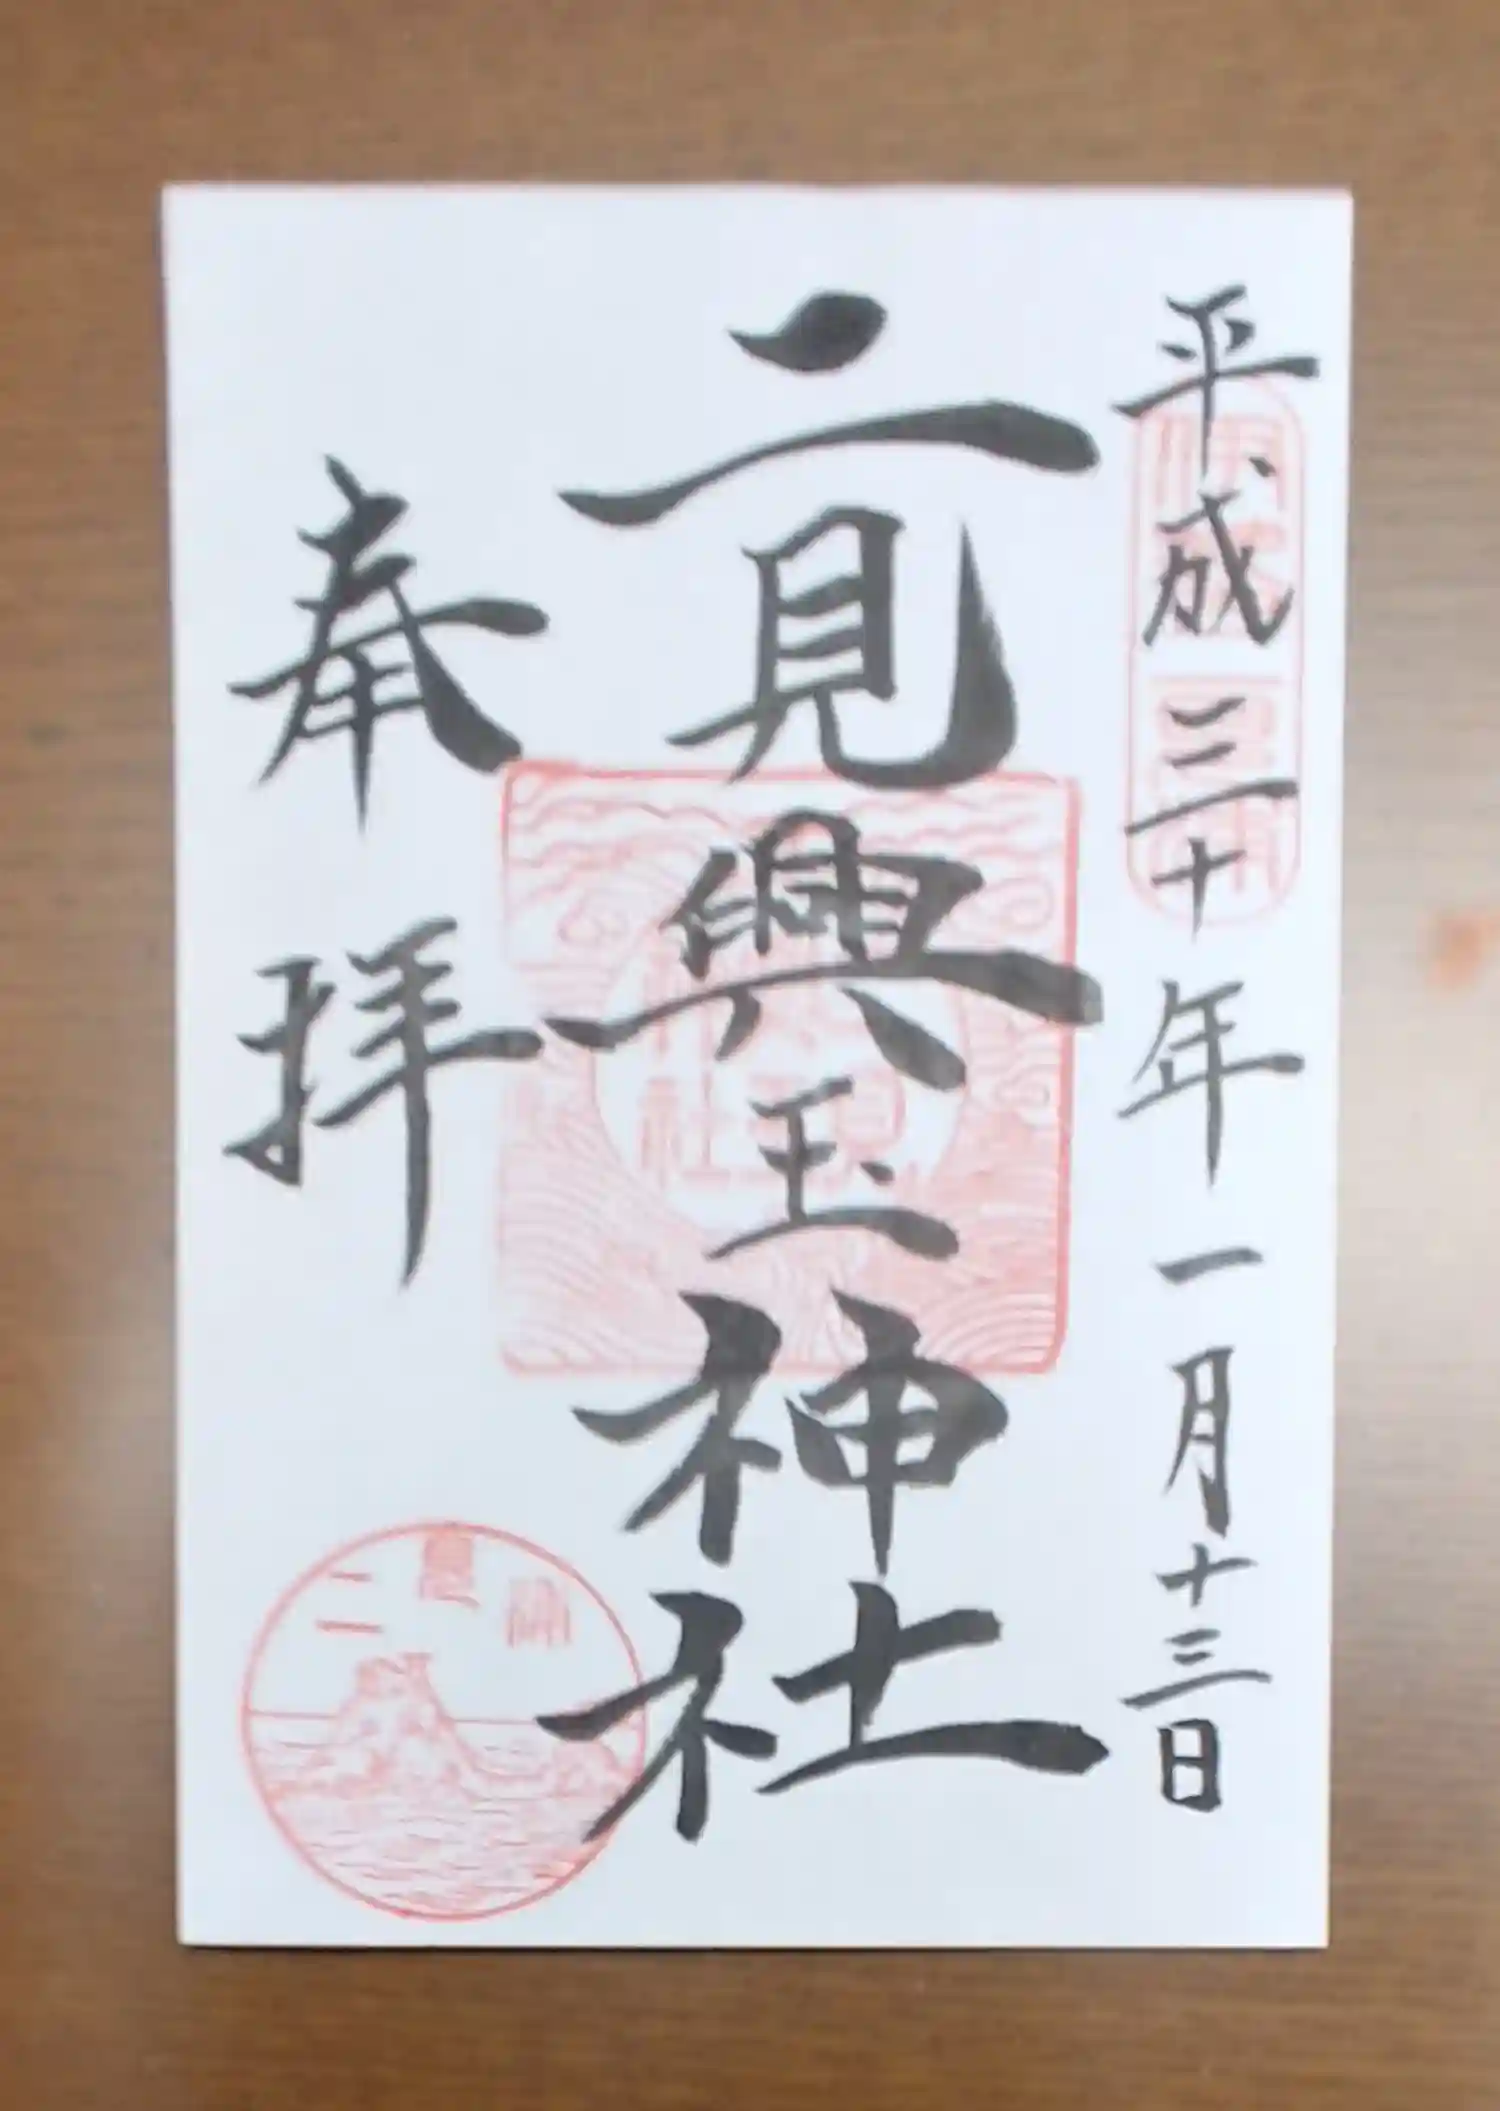 平成三十年一月十三日
二見興玉神社
奉拝
二見浦